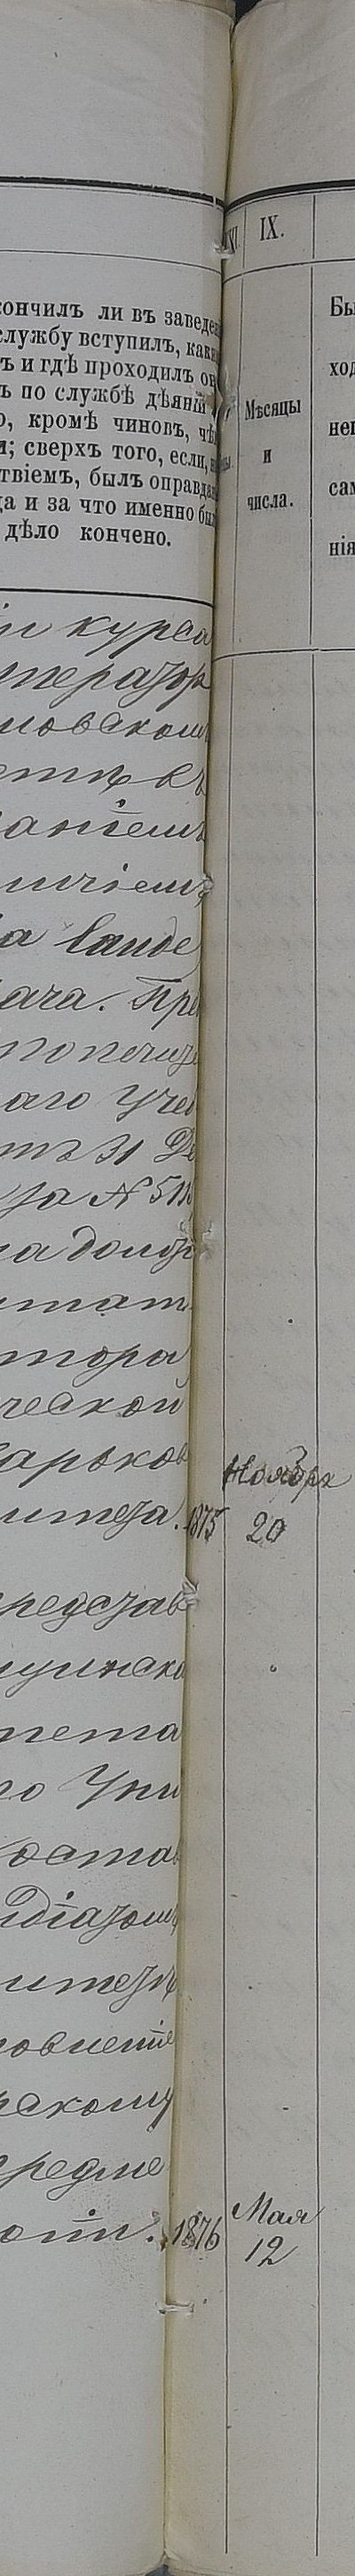 IX.
кончилъ ли въ заведе
службу вступилъ, как
ъ и гдѣ проходилъ он
ъ по службѣ дѣяній
о, кромѣ чиновъ, чѣ
и; сверхъ того, если,
ствіемъ, былъ оправда
да и за что именно бы
дѣло кончено.
Мѣсяцы
и
числа.
Бы
ход
нег
сам
нія
іи курса
ператор
новском
етѣ съ
аніем
ичіем
a laude
ача. Пре
попечи
аго Учеб
тъ 31 Де
за № 511
на долж
штат
тора
ческой
Харьков
итета. 1875
Ноября
20
представ
цинско
тета
го Уни
оста
діатом
итетѣ
новеніе
скому
предме
огіи. 1876
Мая
12